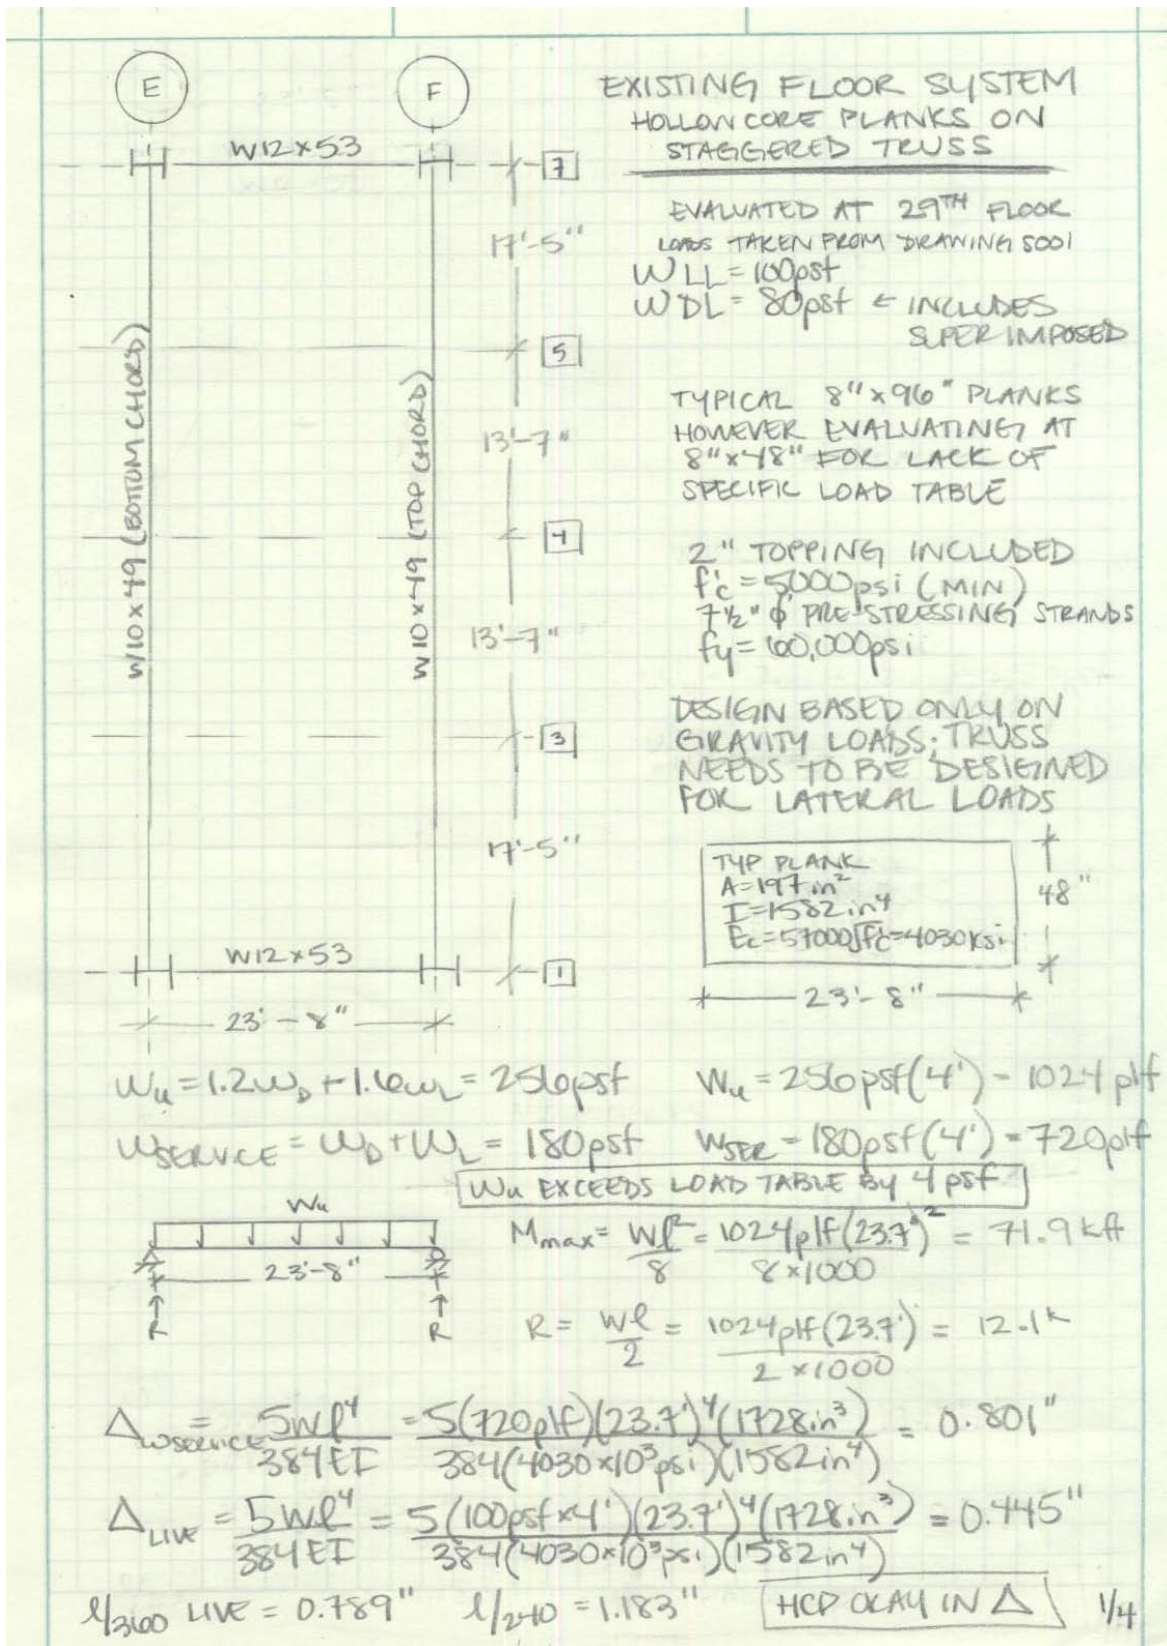 E
F
EXISTING FLOOR SYSTEM
HOLLOW CORE PLANKS ON
STAGGERED TRUSS
W12×53
7
EVALUATED AT 29TH FLOOR
LOADS TAKEN FROM DRAWING S001
17'-5"
WLL = 100psf
WDL = 80psf ← INCLUDES
SUPER IMPOSED
5
W10×49 (BOTTOM CHORD)
W10×49 (TOP CHORD)
TYPICAL 8"×96" PLANKS
HOWEVER EVALUATING AT
8"×48" FOR LACK OF
SPECIFIC LOAD TABLE
13'-7"
4
2" TOPPING INCLUDED
f'c = 5,000psi (MIN)
7 ½" ϕ PRE-STRESSING STRANDS
fy = 60,000psi
13'-7"
3
DESIGN BASED ONLY ON
GRAVITY LOADS; TRUSS
NEEDS TO BE DESIGNED
FOR LATERAL LOADS
17'-5"
TYP PLANK
A=197in²
I=1582in⁴
Ec=57000√f'c=4030ksi
48"
23'-8"
W12×53
1
23'-8"
Wu = 1.2wD + 1.6wL = 256psf Wu = 256psf(4') = 1024plf
WSERVICE = WD + WL = 180psf WSER = 180psf(4') = 720plf
Wu EXCEEDS LOAD TABLE BY 4psf
Wu
23'-8"
R R
Mmax = Wl²/8 = 1024plf(23.7')²/8×1000 = 71.9kft
R = Wl/2 = 1024plf(23.7')/2×1000 = 12.1k
ΔWSERVICE = 5wl⁴/384EI = 5(720plf)(23.7')⁴(1728in³)/384(4030×10³psi)(1582in⁴) = 0.801"
ΔLIVE = 5wl⁴/384EI = 5(100psf×4')(23.7')⁴(1728in³)/384(4030×10³psi)(1582in⁴) = 0.445"
l/360 LIVE = 0.789" l/240 = 1.183" HCP OKAY IN Δ 1/4